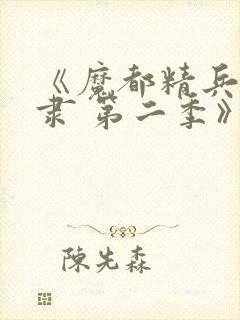 《魔都精兵
隶 第二季》
陳先森